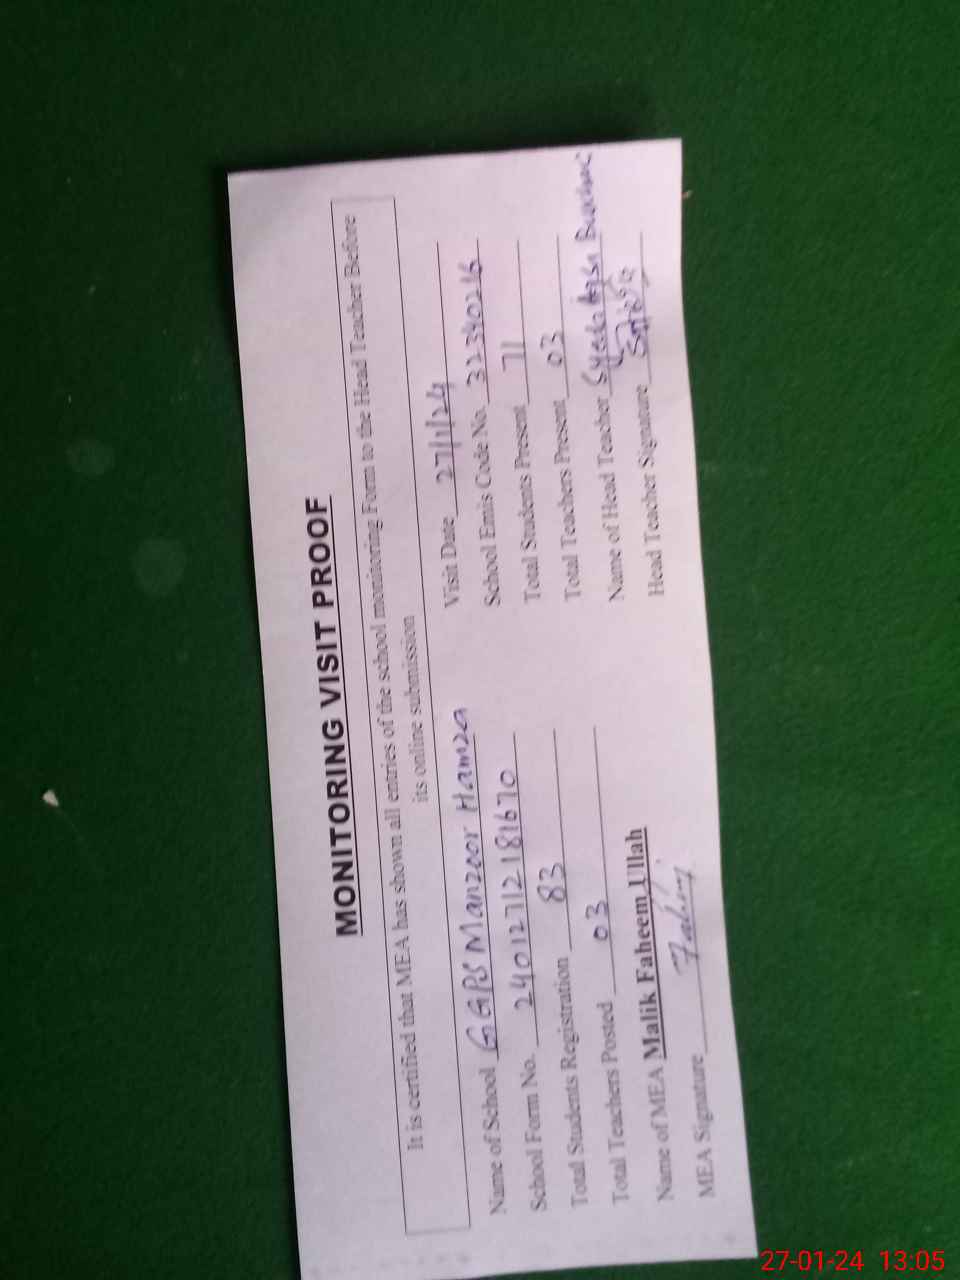 MONITORING VISIT PROOF
It is certified that MEA has shown all entries of the school monitoring Form to the Head Teacher Before
its online submission
Name of School GGPS Manzoor Hamza
School Form No. 24012712181670
Total Students Registration 83
Total Teachers Posted 03
Name of MEA Malik Faheem Ullah
MEA Signature Fahim
Visit Date 27/1/24
School Emis Code No. 32340216
Total Students Present 71
Total Teachers Present 03
Name of Head Teacher Syeda Aqsa
Head Teacher Signature
27-01-24 13:05